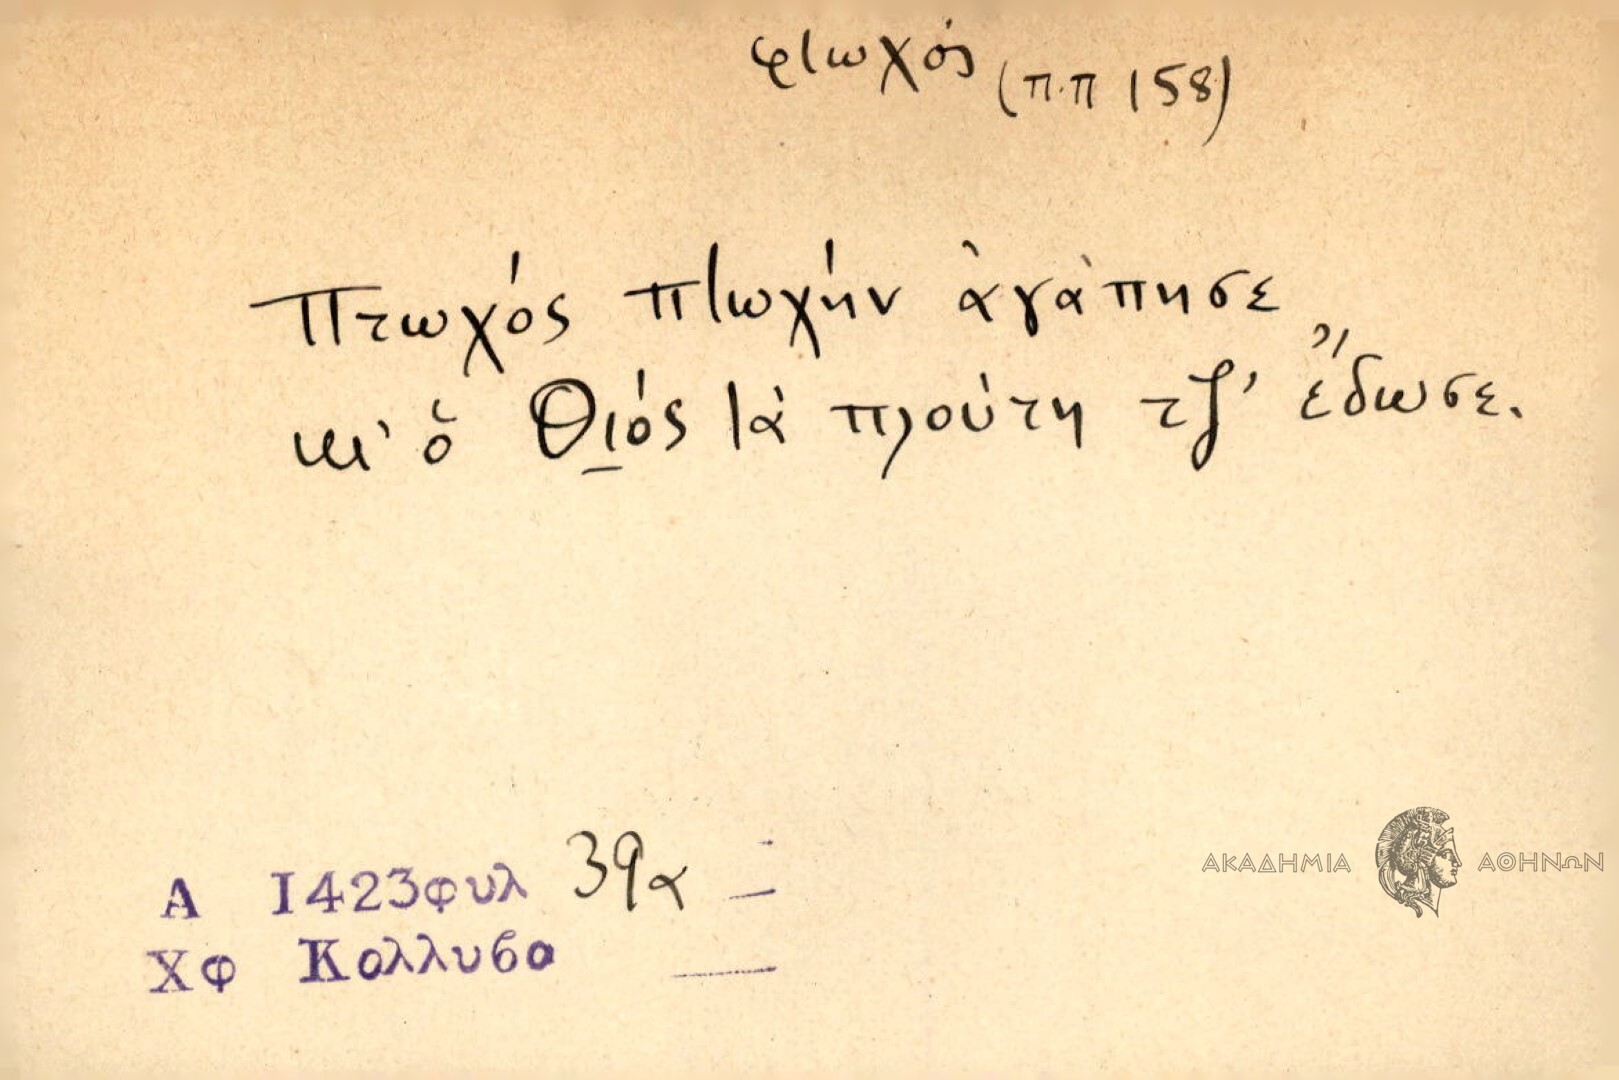 φτωχός (π.π 158)
Πτωχός πτωχήν ἀγάπησε
κι' ὁ Θιός τὰ πλούτη τζ' ἔδωσε.
Α 1423φυλ 39α
Χφ Κολλυβα
ΑΚΑΔΗΜΙΑ ΑΘΗΝΩΝ